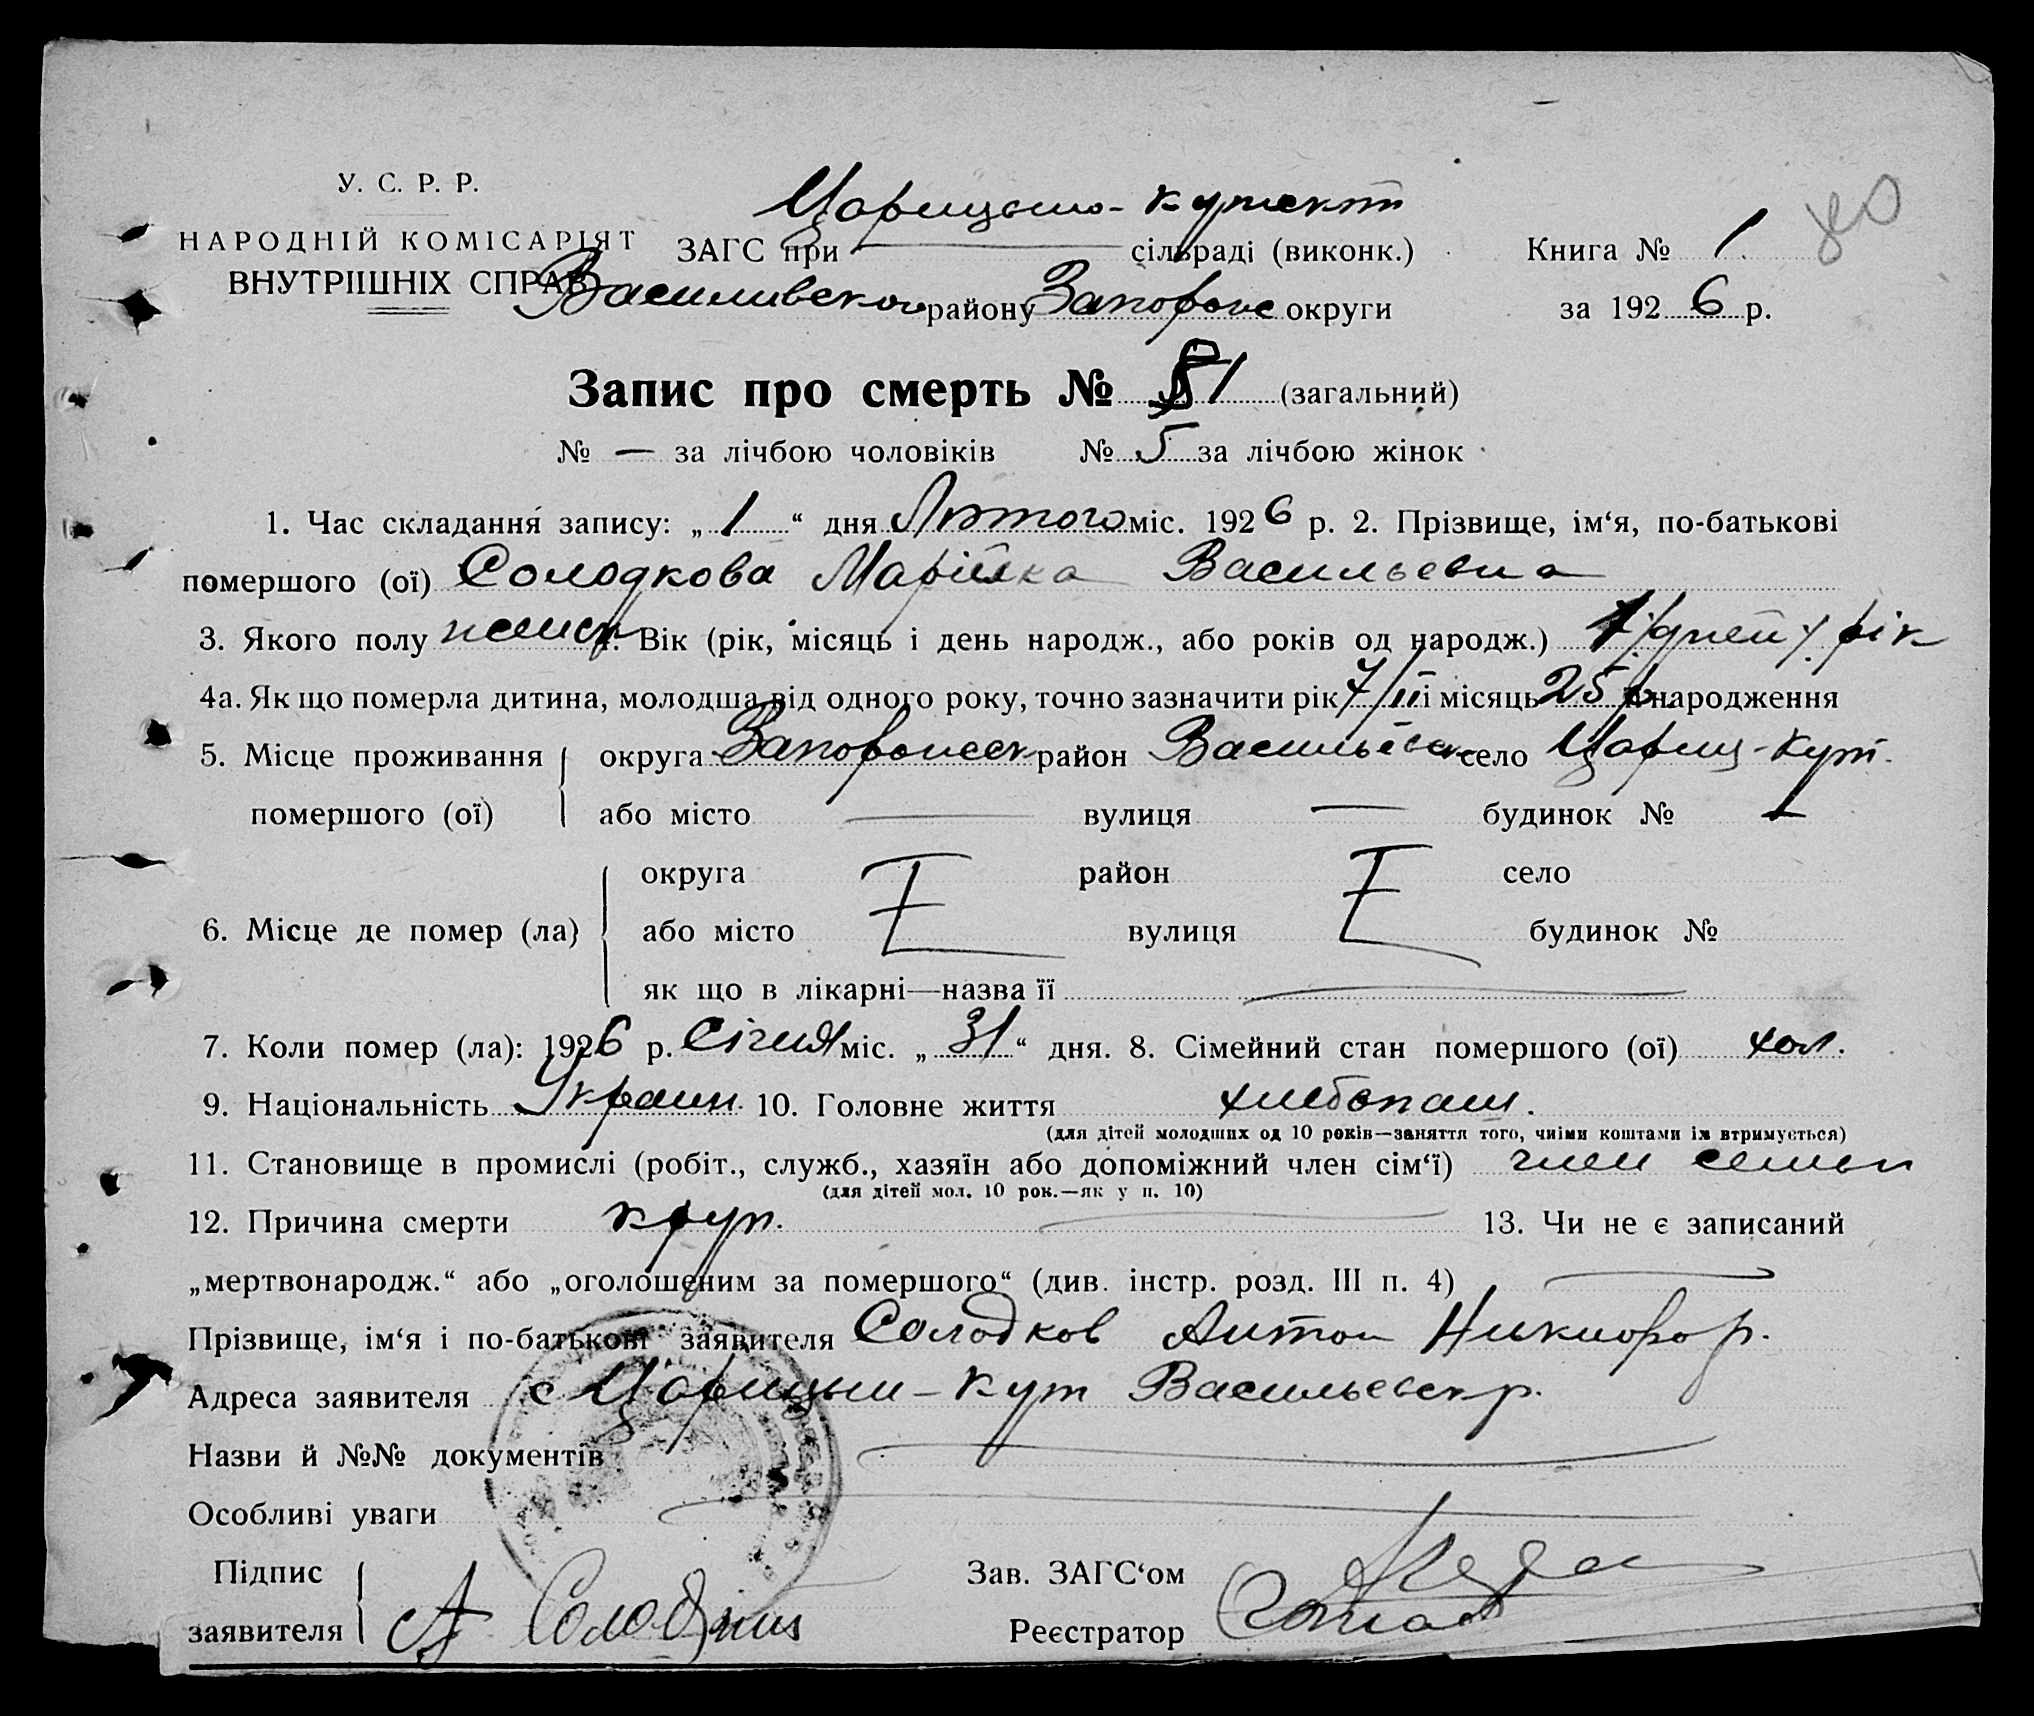 У. С. Р. Р.
НАРОДНІЙ КОМІСАРІЯТ
ВНУТРІШНІХ СПРАВ
Царицыно-кутскій
ЗАГС при сільраді (виконк.) Книга № 1
80
Василивского району Запорожс округи за 1926 р.
Запис про смерть № 81 (загальний)
№ — за лічбою чоловіків № 5 за лічбою жінок
1. Час складання запису: „1“ дня Лютого міс. 1926 р. 2. Прізвище, ім‘я, по-батькові
помершого (ої) Солодкова Марійка Васильевна
3. Якого полу женск 4. Вік (рік, місяць і день народж., або років од народж.) дней рік
4а. Як що померла дитина, молодша від одного року, точно зазначити рік і місяць 25 народження
5. Місце проживання округа Запорожск район Васильевск село Цариц-Кут.
помершого (ої) або місто — вулиця — будинок № —
округа район село
6. Місце де помер (ла) або місто вулиця будинок №
як що в лікарні—назва її
7. Коли помер (ла): 1926 р. Січня міс. „31“ дня. 8. Сімейний стан помершого (ої) хол.
9. Національність Украин. 10. Головне життя хлебопаш.
(для дітей молодших од 10 років—заняття того, чиїми коштами їх втримується)
11. Становище в промислі (робіт., служб., хазяїн або допоміжний член сім‘ї) член семьи
(для дітей мол. 10 рок.—як у п. 10)
12. Причина смерти круп. 13. Чи не є записаний
„мертвонародж.“ або „оголошеним за помершого“ (див. інстр. розд. III п. 4)
Прізвище, ім‘я і по-батькові заявителя Солодков Антон Никифор.
Адреса заявителя с Царицын-Кут Васильевск р.
Назви й №№ документів
Особливі уваги
Підпис Зав. ЗАГС‘ом
заявителя А Солодкив Реєстратор